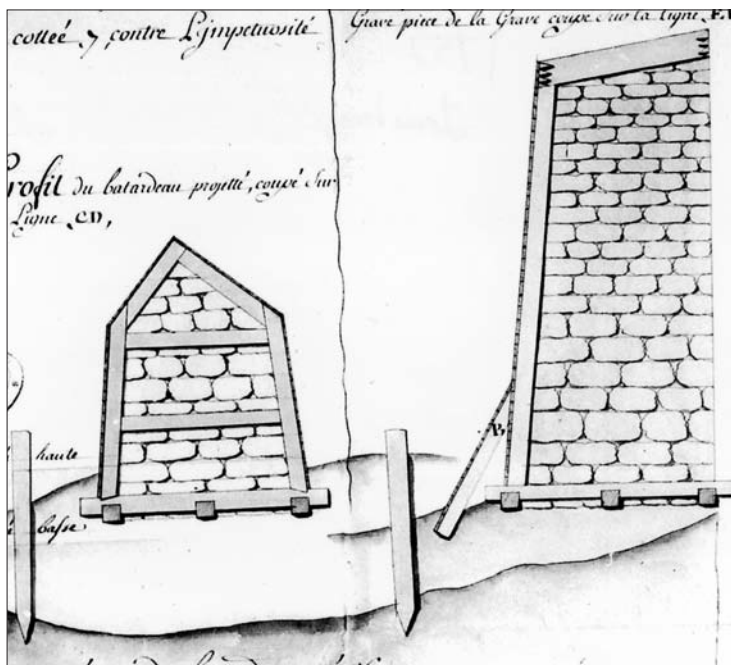 cottéé y, contre L'jmpetuosité
Grave piece de la Grave coupe sur la ligne
Profil du batardeau projetté, coupé sur
Ligne CD,
haute
B
basse